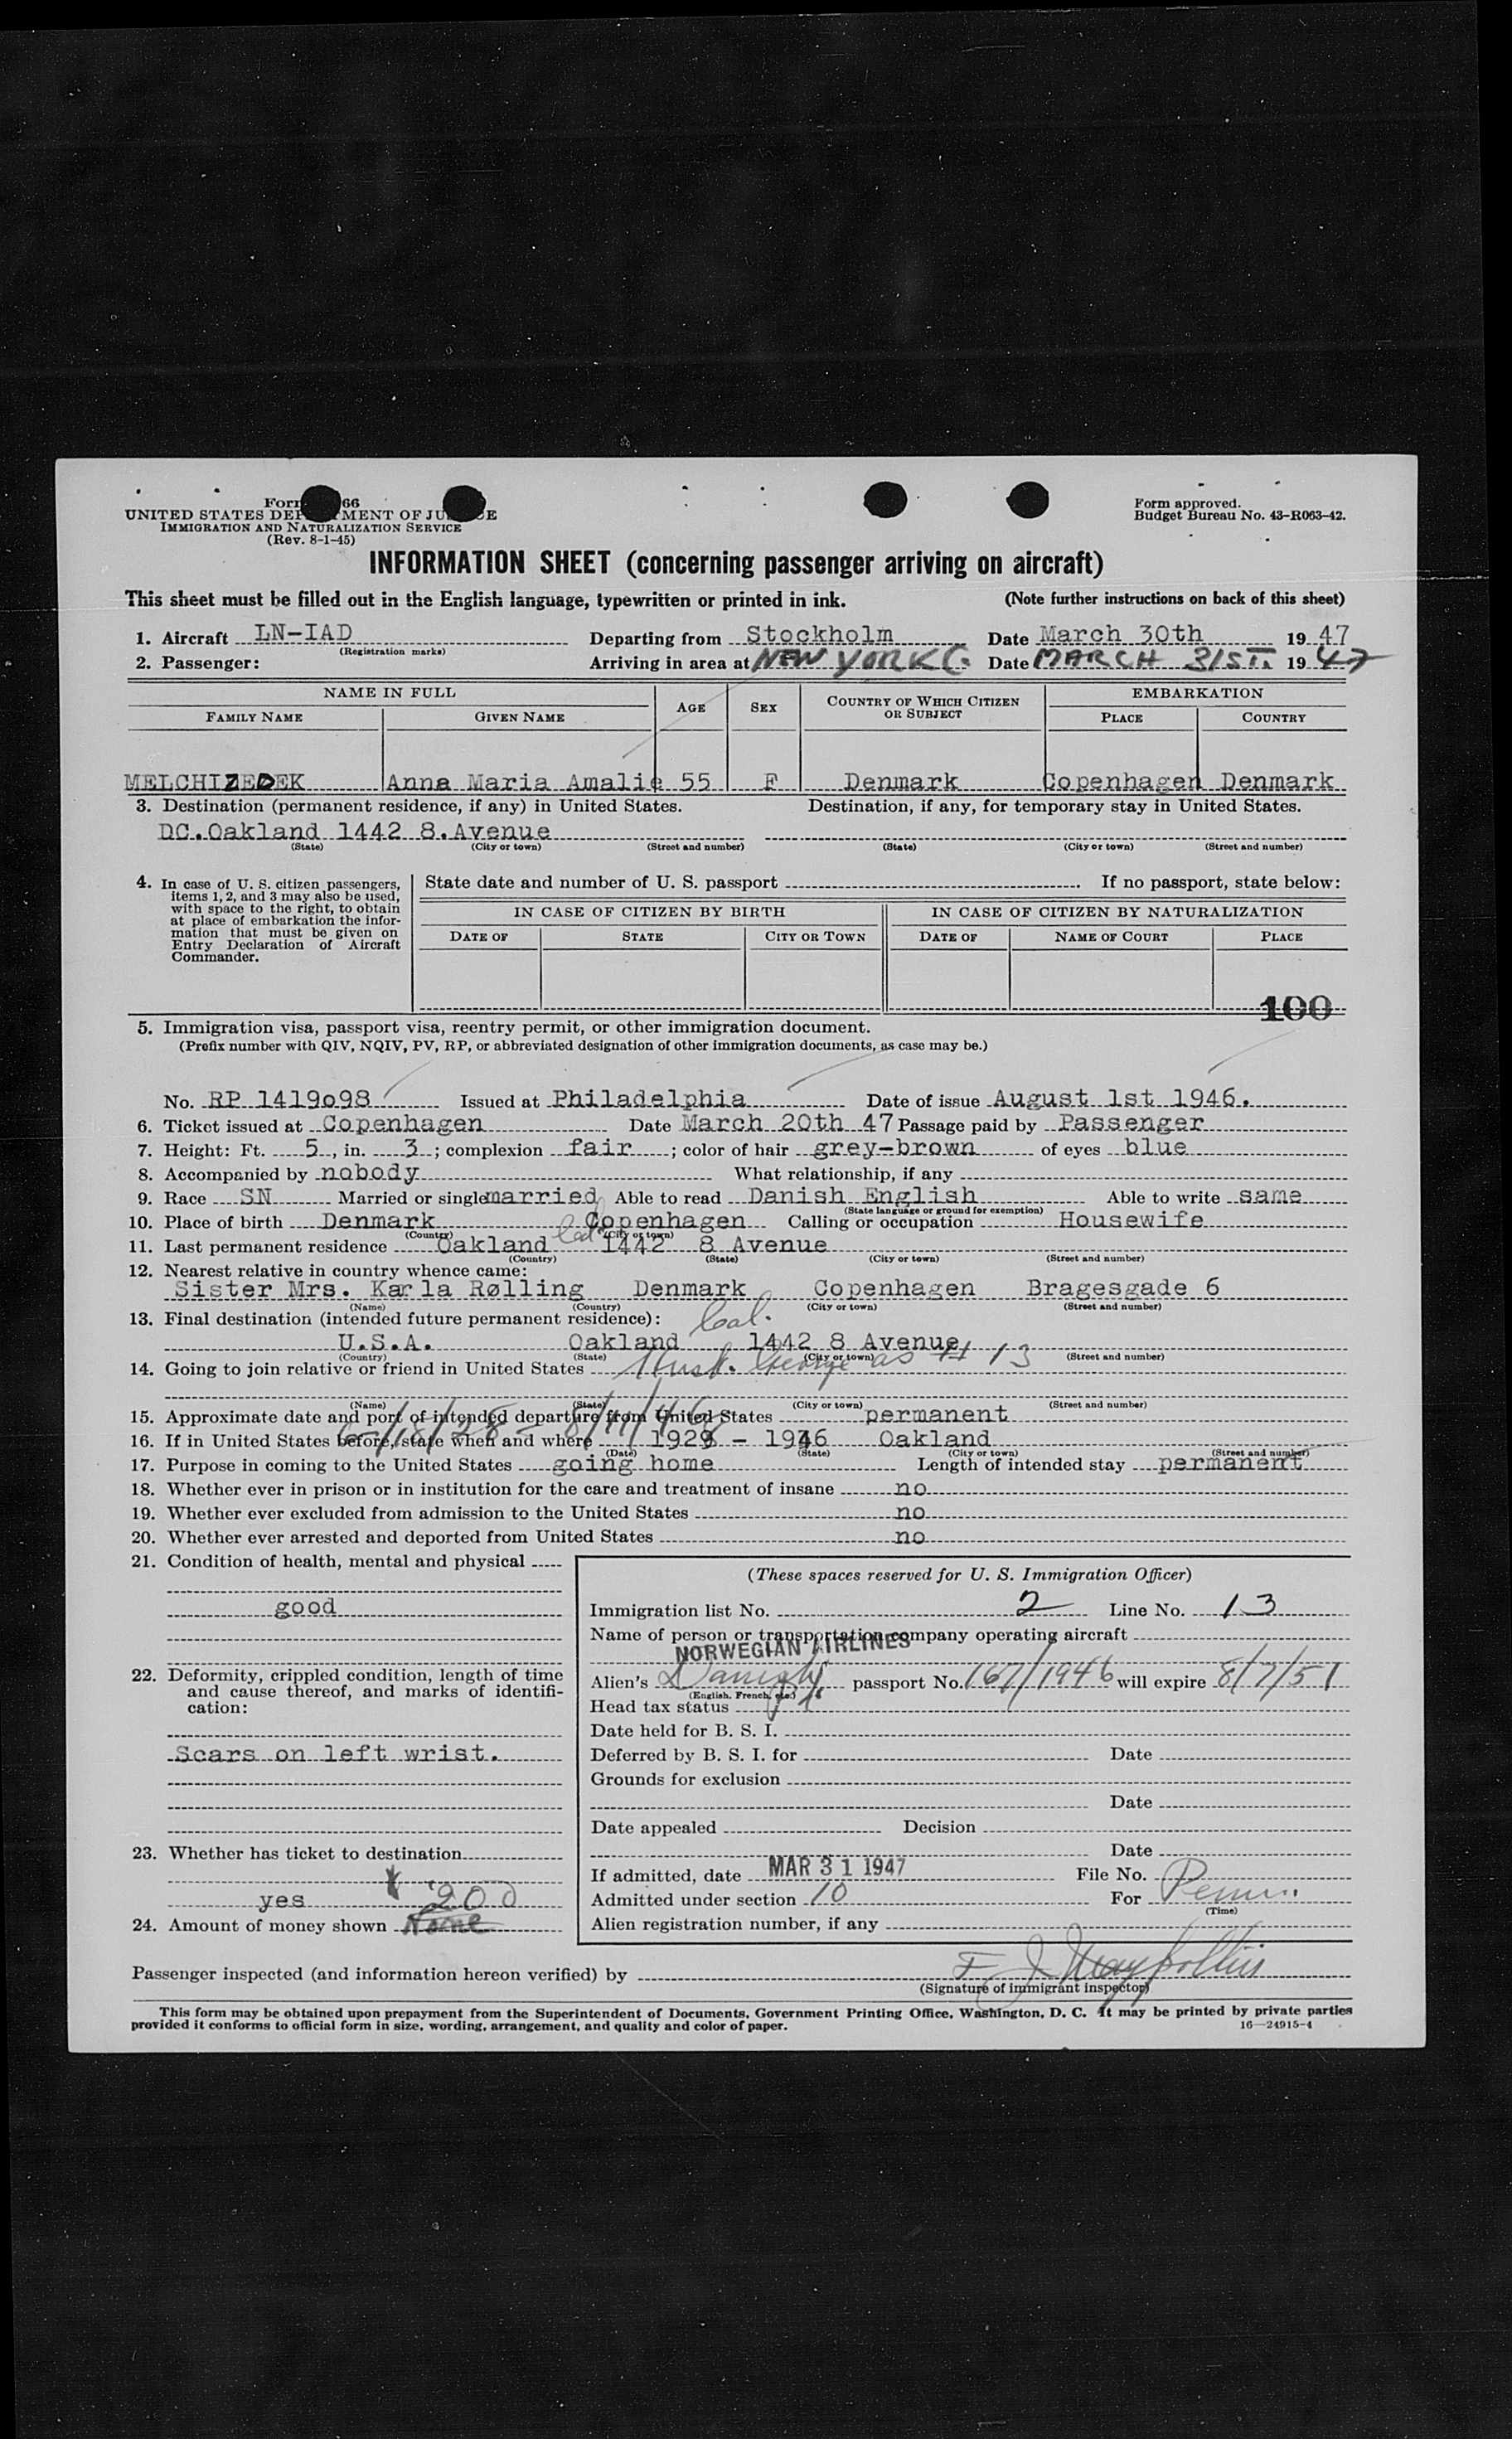 Form 66
UNITED STATES DEPARTMENT OF JUSTICE
IMMIGRATION AND NATURALIZATION SERVICE
(Rev. 8-1-45)
Form approved.
Budget Bureau No. 43-R063-42.
INFORMATION SHEET (concerning passenger arriving on aircraft)
This sheet must be filled out in the English language, typewritten or printed in ink. (Note further instructions on back of this sheet)
1. Aircraft LN-IAD Departing from Stockholm Date March 30th 19 47
(Registration marks)
2. Passenger: Arriving in area at NEW YORK Date MARCH 31ST. 19 47
NAME IN FULL AGE SEX COUNTRY OF WHICH CITIZEN OR SUBJECT EMBARKATION
FAMILY NAME GIVEN NAME PLACE COUNTRY
MELCHIZEDEK Anna Maria Amalie 55 F Denmark Copenhagen Denmark
3. Destination (permanent residence, if any) in United States. Destination, if any, for temporary stay in United States.
DC. Oakland 1442 8. Avenue
(State) (City or town) (Street and number) (State) (City or town) (Street and number)
4. In case of U. S. citizen passengers, items 1, 2, and 3 may also be used, with space to the right, to obtain at place of embarkation the information that must be given on Entry Declaration of Aircraft Commander.
State date and number of U. S. passport If no passport, state below:
IN CASE OF CITIZEN BY BIRTH IN CASE OF CITIZEN BY NATURALIZATION
DATE OF STATE CITY OR TOWN DATE OF NAME OF COURT PLACE
100
5. Immigration visa, passport visa, reentry permit, or other immigration document.
(Prefix number with QIV, NQIV, PV, RP, or abbreviated designation of other immigration documents, as case may be.)
No. RP 1419098 Issued at Philadelphia Date of issue August 1st 1946.
6. Ticket issued at Copenhagen Date March 20th 47 Passage paid by Passenger
7. Height: Ft. 5, in. 3; complexion fair; color of hair grey-brown of eyes blue
8. Accompanied by nobody What relationship, if any
9. Race SN Married or single married Able to read Danish English Able to write same
(State language or ground for exemption)
10. Place of birth Denmark Copenhagen Calling or occupation Housewife
(Country) (City or town)
11. Last permanent residence Oakland Cal 1442 8 Avenue
(Country) (State) (City or town) (Street and number)
12. Nearest relative in country whence came:
Sister Mrs. Karla Rølling Denmark Copenhagen Bragesgade 6
(Name) (Country) (City or town) (Street and number)
13. Final destination (intended future permanent residence): Cal.
U.S.A. Oakland 1442 8 Avenue
(Country) (State) (City or town) (Street and number)
14. Going to join relative or friend in United States Husb. George as # 13
(Name) (State) (City or town) (Street and number)
15. Approximate date and port of intended departure from United States permanent
6/18/28 - 8/11/46
16. If in United States before, state when and where 1928 - 1946 Oakland
(Date) (State) (City or town) (Street and number)
17. Purpose in coming to the United States going home Length of intended stay permanent
18. Whether ever in prison or in institution for the care and treatment of insane no
19. Whether ever excluded from admission to the United States no
20. Whether ever arrested and deported from United States no
21. Condition of health, mental and physical
good
22. Deformity, crippled condition, length of time and cause thereof, and marks of identification:
Scars on left wrist.
23. Whether has ticket to destination
yes $200
24. Amount of money shown None
(These spaces reserved for U. S. Immigration Officer)
Immigration list No. 2 Line No. 13
Name of person or transportation company operating aircraft
NORWEGIAN AIRLINES
Alien's Danish passport No. 167/1946 will expire 8/7/51
(English, French, etc.)
Head tax status
Date held for B. S. I.
Deferred by B. S. I. for Date
Grounds for exclusion
Date
Date appealed Decision
Date
If admitted, date MAR 31 1947 File No.
Admitted under section 10 For Perm
(Time)
Alien registration number, if any
Passenger inspected (and information hereon verified) by F J
(Signature of immigrant inspector)
This form may be obtained upon prepayment from the Superintendent of Documents, Government Printing Office, Washington, D. C. It may be printed by private parties
provided it conforms to official form in size, wording, arrangement, and quality and color of paper.
16—24915-4